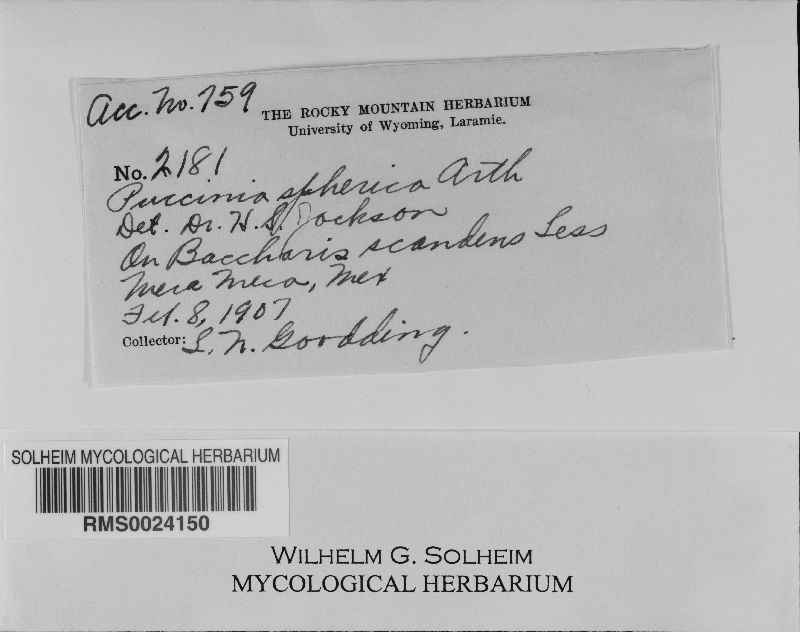 Acc. No. 759
THE ROCKY MOUNTAIN HERBARIUM
University of Wyoming, Laramie.
No. 2181
Puccinia spherica Arth
Det. Dr. H. S. Jackson
On Baccharis scandens Less
Meca Meca, Mex
Feb. 8, 1907
Collector: L. N. Goodding.
SOLHEIM MYCOLOGICAL HERBARIUM
RMS0024150
WILHELM G. SOLHEIM
MYCOLOGICAL HERBARIUM